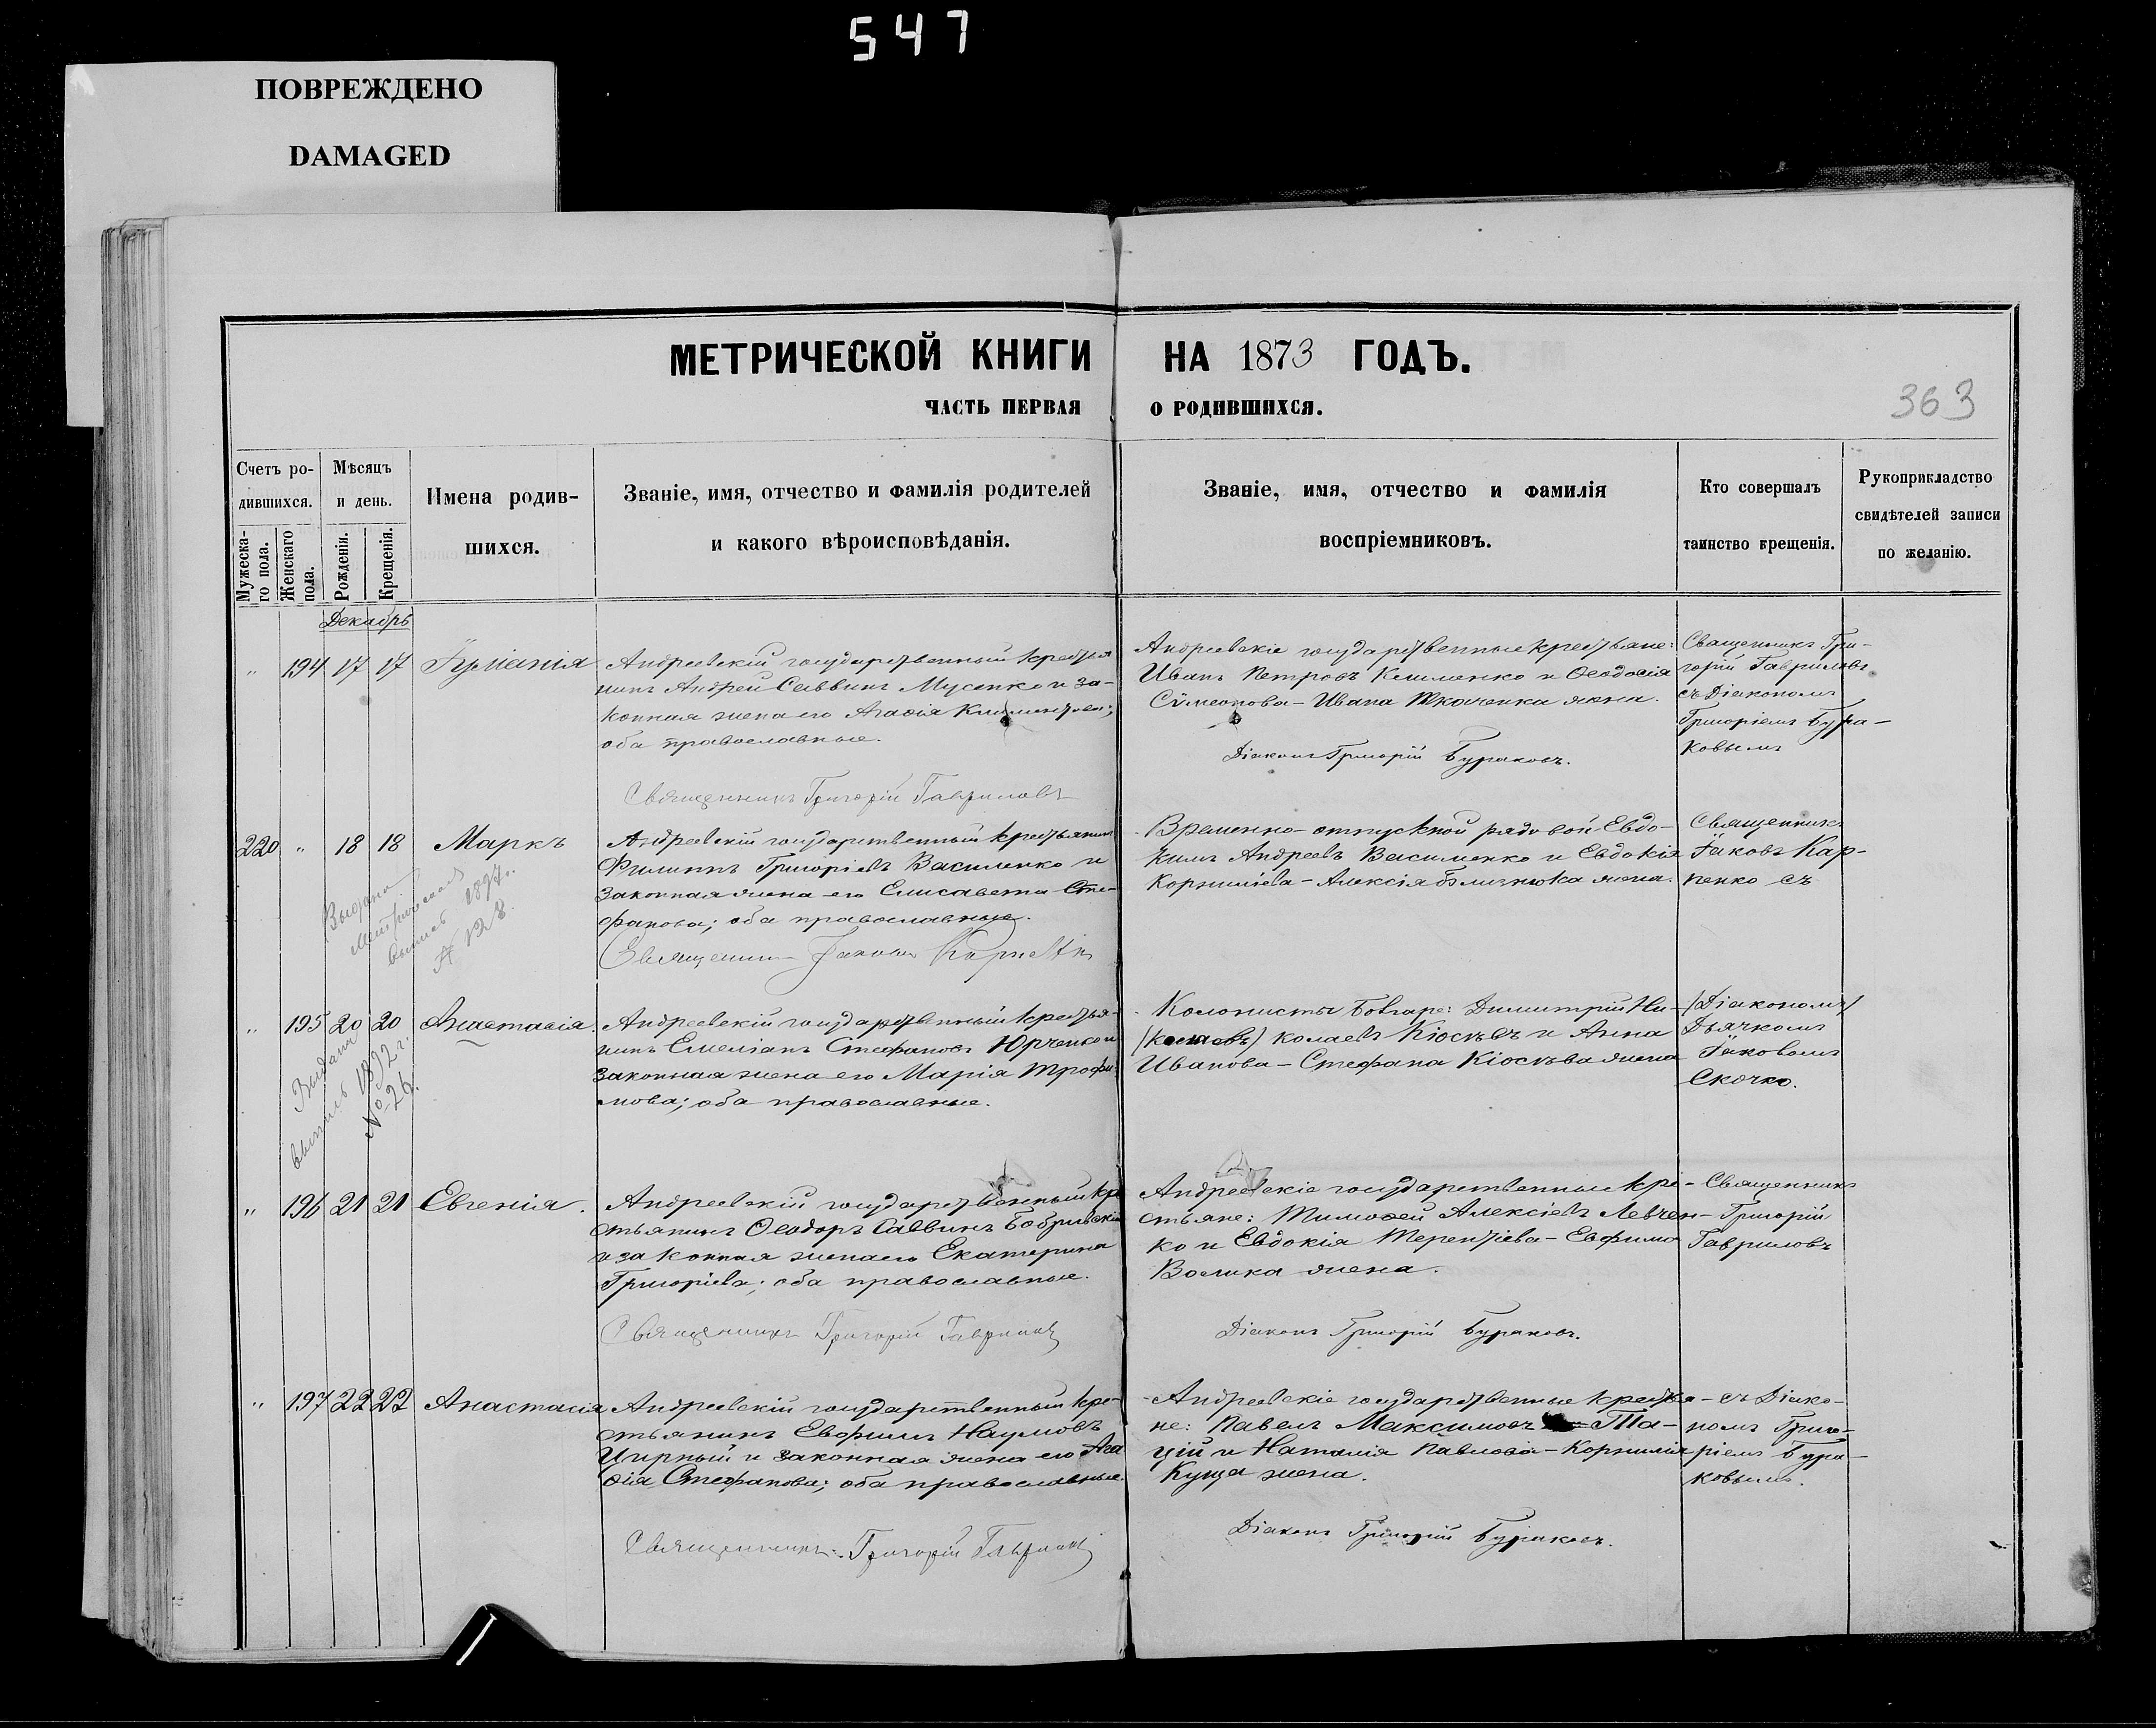 547
ПОВРЕЖДЕНО
DAMAGED
МЕТРИЧЕСКОЙ КНИГИ НА 1873 ГОДЪ.
ЧАСТЬ ПЕРВАЯ О РОДИВШИХСЯ.
363
Счетъ ро-
дившихся.
Мужеска-
го пола.
Женскаго
пола.
Мѣсяцъ
и день.
Рожденія.
Крещенія.
Имена родив-
шихся.
Званіе, имя, отчество и фамилія родителей
и какого вѣроисповѣданія.
Званіе, имя, отчество и фамилія
воспріемниковъ.
Кто совершалъ
таинство крещенія.
Рукоприкладство
свидѣтелей записи
по желанію.
Декабрь
" 194 17 17 Іуліанія
Андреевскій государственный крестья
нинъ Андрей Саввинъ Мусенко и за-
конная жена его Агаѳія Климентова;
оба православные.
Священникъ Григорій Гавриловъ
Андреевскіе государственные крестьяне:
Иванъ Петровъ Клименко и Ѳеодосія
Сѵмеонова - Ивана Ткаченка жена.
Діаконъ Григорій Бураковъ.
Священникъ Гри-
горій Гавриловъ
съ Діакономъ
Григоріемъ Бура-
ковымъ
220 " 18 18 Маркъ
Выдана
метрическая
выпись 1894 г.
№ 128.
Андреевскій государственный крестьянинъ
Филиппъ Григоріевъ Василенко и
законная жена его Елисавета Сте-
фанова; оба православные.
Священникъ Іаковъ Карпенко
Временно-отпускной рядовой Евдо-
кимъ Андреевъ Василенко и Евдокія
Корниліева - Алексія Близнюка жена.
Священникъ
Іаковъ Кар-
пенко съ
" 195 20 20 Анастасія.
Выдана
выпись 1892 г.
№ 26.
Андреевскій государственный крестья-
нинъ Емеліанъ Стефановъ Юрченко и
законная жена его Марія Трофи-
мова; оба православные.
Колонисты Болгаре: Димитрій Ни-
колаевъ Кіосевъ и Анна
Иванова - Стефана Кіосева жена
(Діакономъ)
Дьячкомъ
Іаковомъ
Скочко.
" 196 21 21 Евгенія.
Андреевскій государственный кре
стьянинъ Ѳеодоръ Саввинъ Бобривскій
и законная жена его Екатерина
Григоріева; оба православные.
Священникъ Григорій Гавриловъ
Андреевскіе государственные кре-
стьяне: Тимоѳей Алексіевъ Левчен-
ко и Евдокія Терентіева - Евфима
Волика жена.
Діаконъ Григорій Бураковъ.
Священникъ
Григорій
Гавриловъ
" 197 22 22 Анастасія
Андреевскій государственный кре-
стьянинъ Евфимъ Наумовъ
Цирный и законная жена его Ага
ѳія Стефанова; оба православные.
Священникъ Григорій Гавриловъ
Андреевскіе государственные крестья-
не: Павелъ Максимовъ Та-
цій и Наталія Павлова - Корнилія
Куща жена.
Діаконъ Григорій Бураковъ.
съ Діако-
номъ Григо-
ріемъ Бура-
ковымъ.